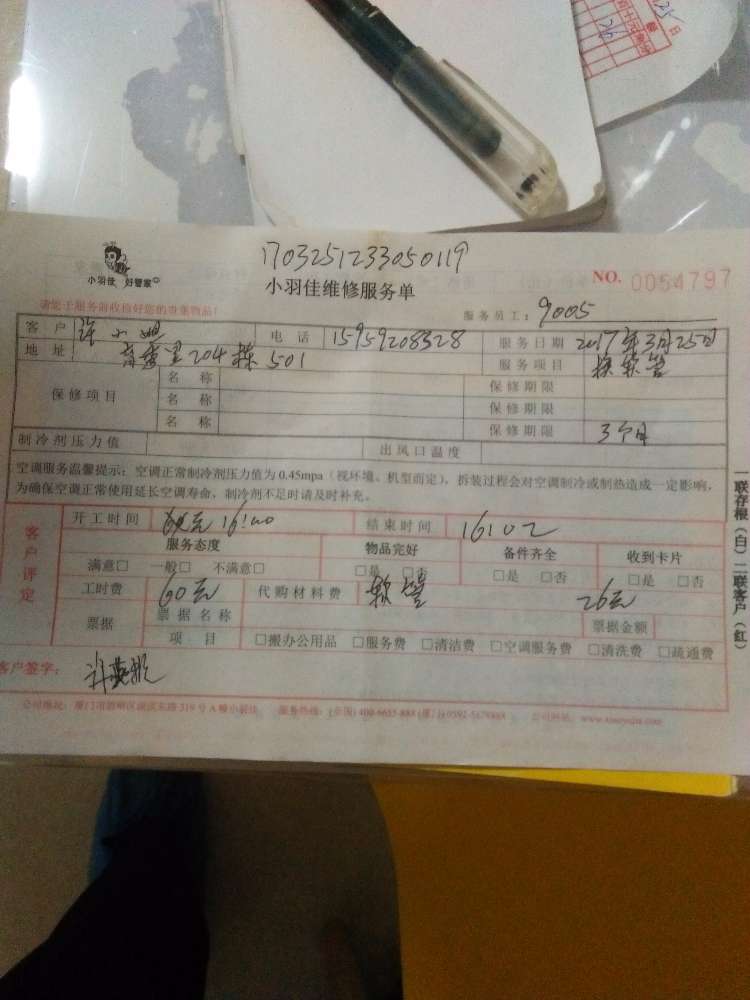 25日
26
1703251233050119
小羽佳 好管家
小羽佳维修服务单
NO. 0054797
请您于服务前收捡好您的贵重物品!
服务员工: 9005
客户 许小姐 电话 15959208328 服务日期 2017年3月25日
地址 204栋501 服务项目 换软管
保修项目 名称 保修期限
名称 保修期限
名称 保修期限 3个月
制冷剂压力值 出风口温度
空调服务温馨提示: 空调正常制冷剂压力值为0.45mpa(视环境、机型而定), 拆装过程会对空调制冷或制热造成一定影响,
为确保空调正常使用延长空调寿命, 制冷剂不足时请及时补充。
客户评定
开工时间 16:00 结束时间 16:02
服务态度 物品完好 备件齐全 收到卡片
满意□ 一般□ 不满意□ □是 □否 □是 □否 □是 □否
工时费 60元 代购材料费 软管 26元
票据 票据名称 票据金额
项目 □搬办公用品 □服务费 □清洁费 □空调服务费 □清洗费 □疏通费
客户签字:
一联存根(白) 二联客户(红)